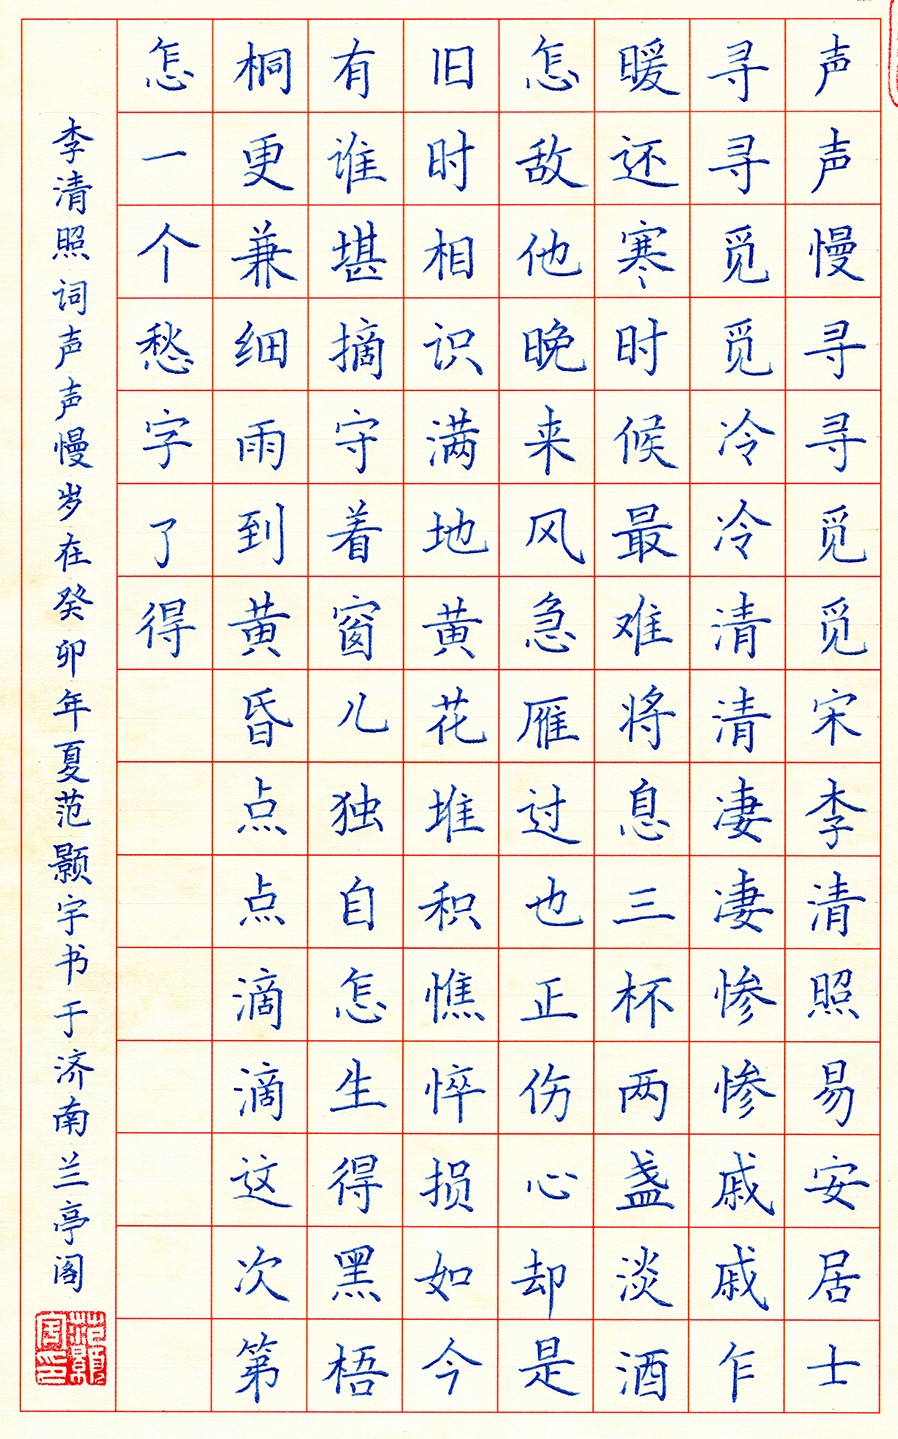 声声慢寻寻觅觅宋李清照易安居士
寻寻觅觅冷冷清清凄凄惨惨戚戚乍
暖还寒时候最难将息三杯两盏淡酒
怎敌他晚来风急雁过也正伤心却是
旧时相识满地黄花堆积憔悴损如今
有谁堪摘守着窗儿独自怎生得黑梧
桐更兼细雨到黄昏点点滴滴这次第
怎一个愁字了得
李清照词声声慢岁在癸卯年夏范颢宇书于济南兰亭阁